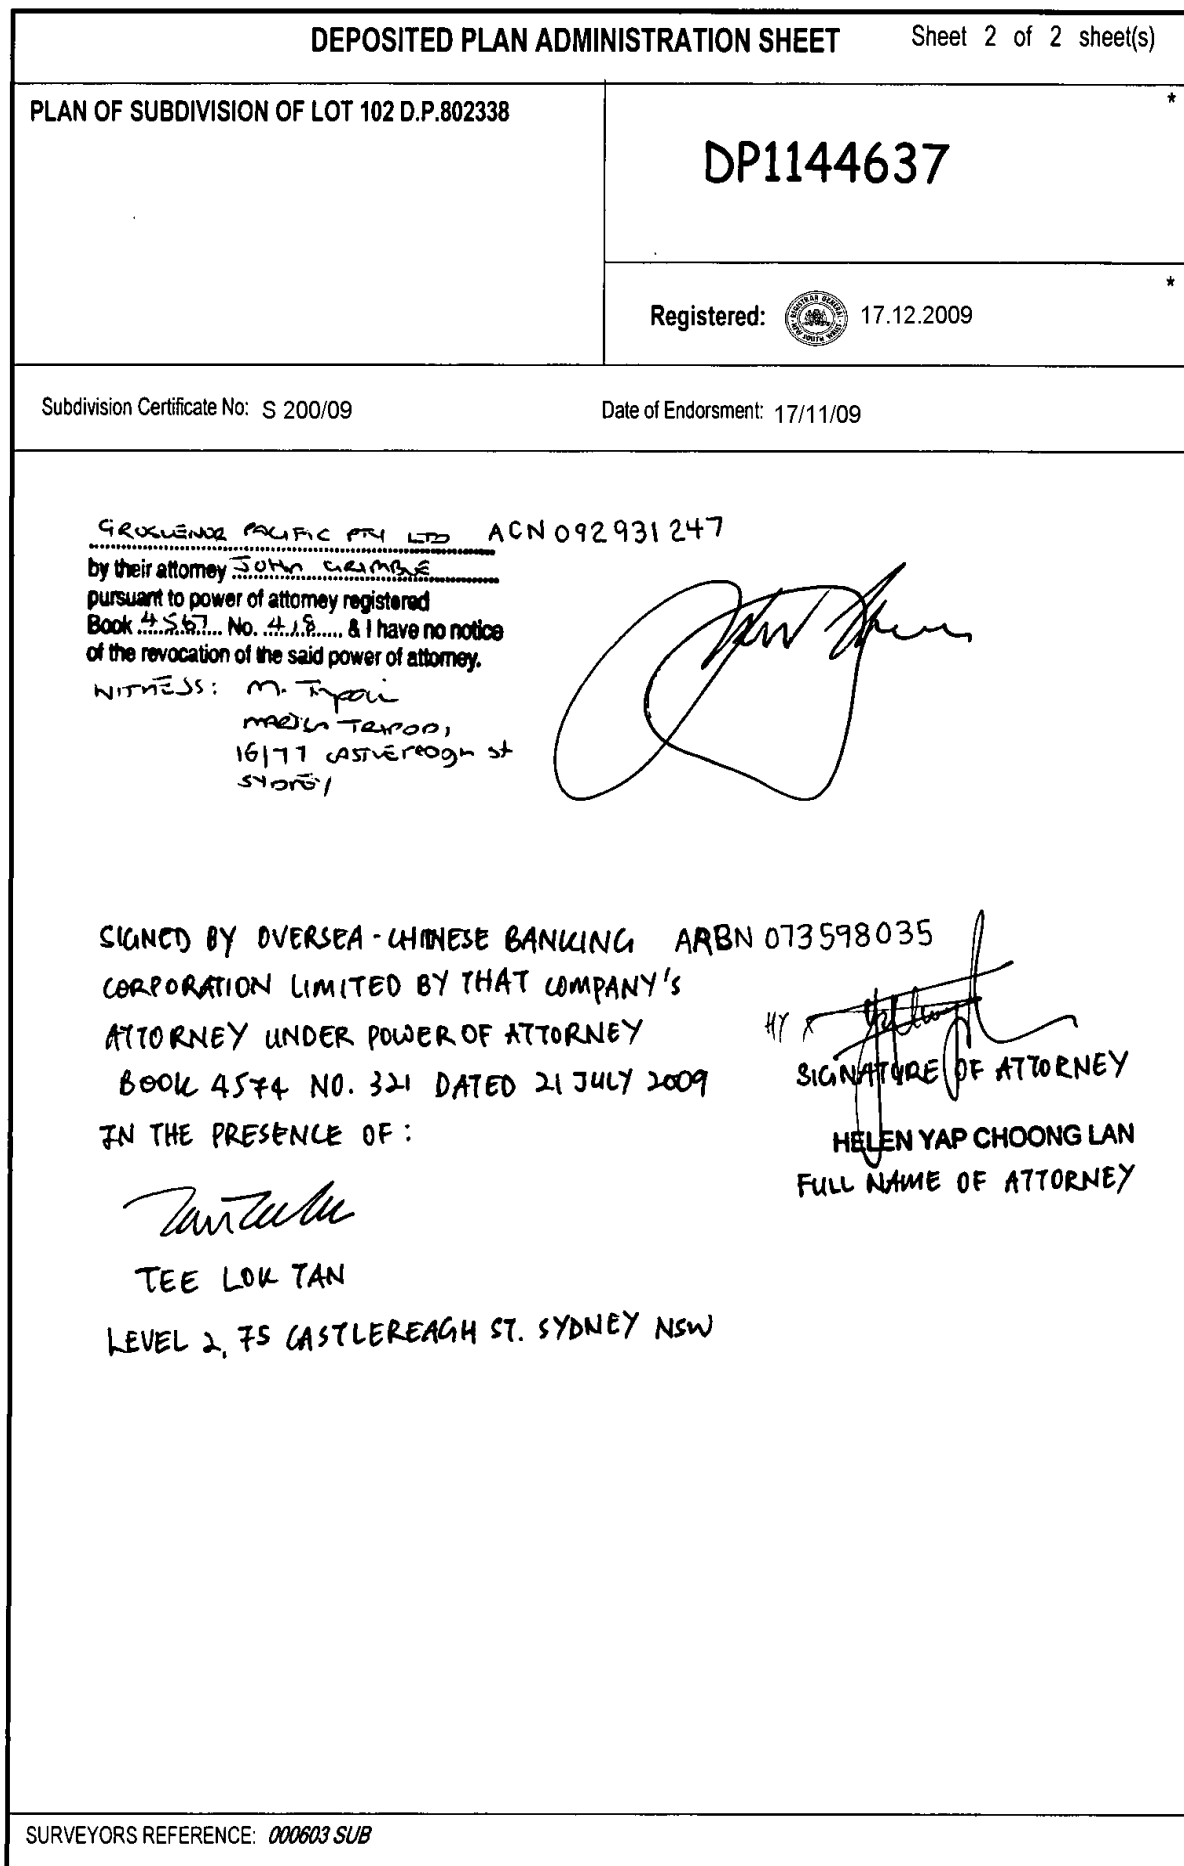 DEPOSITED PLAN ADMINISTRATION SHEET Sheet 2 of 2 sheet(s)
PLAN OF SUBDIVISION OF LOT 102 D.P.802338
*
DP1144637
*
Registered: REGISTRAR GENERAL NEW SOUTH WALES 17.12.2009
Subdivision Certificate No: S 200/09 Date of Endorsment: 17/11/09
GROSVENOR PACIFIC PTY LTD ACN 092931247
by their attorney JOHN GRIMBLE
pursuant to power of attorney registered
Book 4567 No. 418 & I have no notice
of the revocation of the said power of attorney.
WITNESS: M. Tripodi
TRIPODI
16/77 CASTLEREAGH St
SYDNEY
SIGNED BY OVERSEA-CHINESE BANKING ARBN 073598035
CORPORATION LIMITED BY THAT COMPANY'S
ATTORNEY UNDER POWER OF ATTORNEY
BOOK 4574 NO. 321 DATED 21 JULY 2009
IN THE PRESENCE OF:
HY X
SIGNATURE OF ATTORNEY
HELEN YAP CHOONG LAN
FULL NAME OF ATTORNEY
TEE LOK TAN
LEVEL 2, 75 CASTLEREAGH ST. SYDNEY NSW
SURVEYORS REFERENCE: 000603 SUB